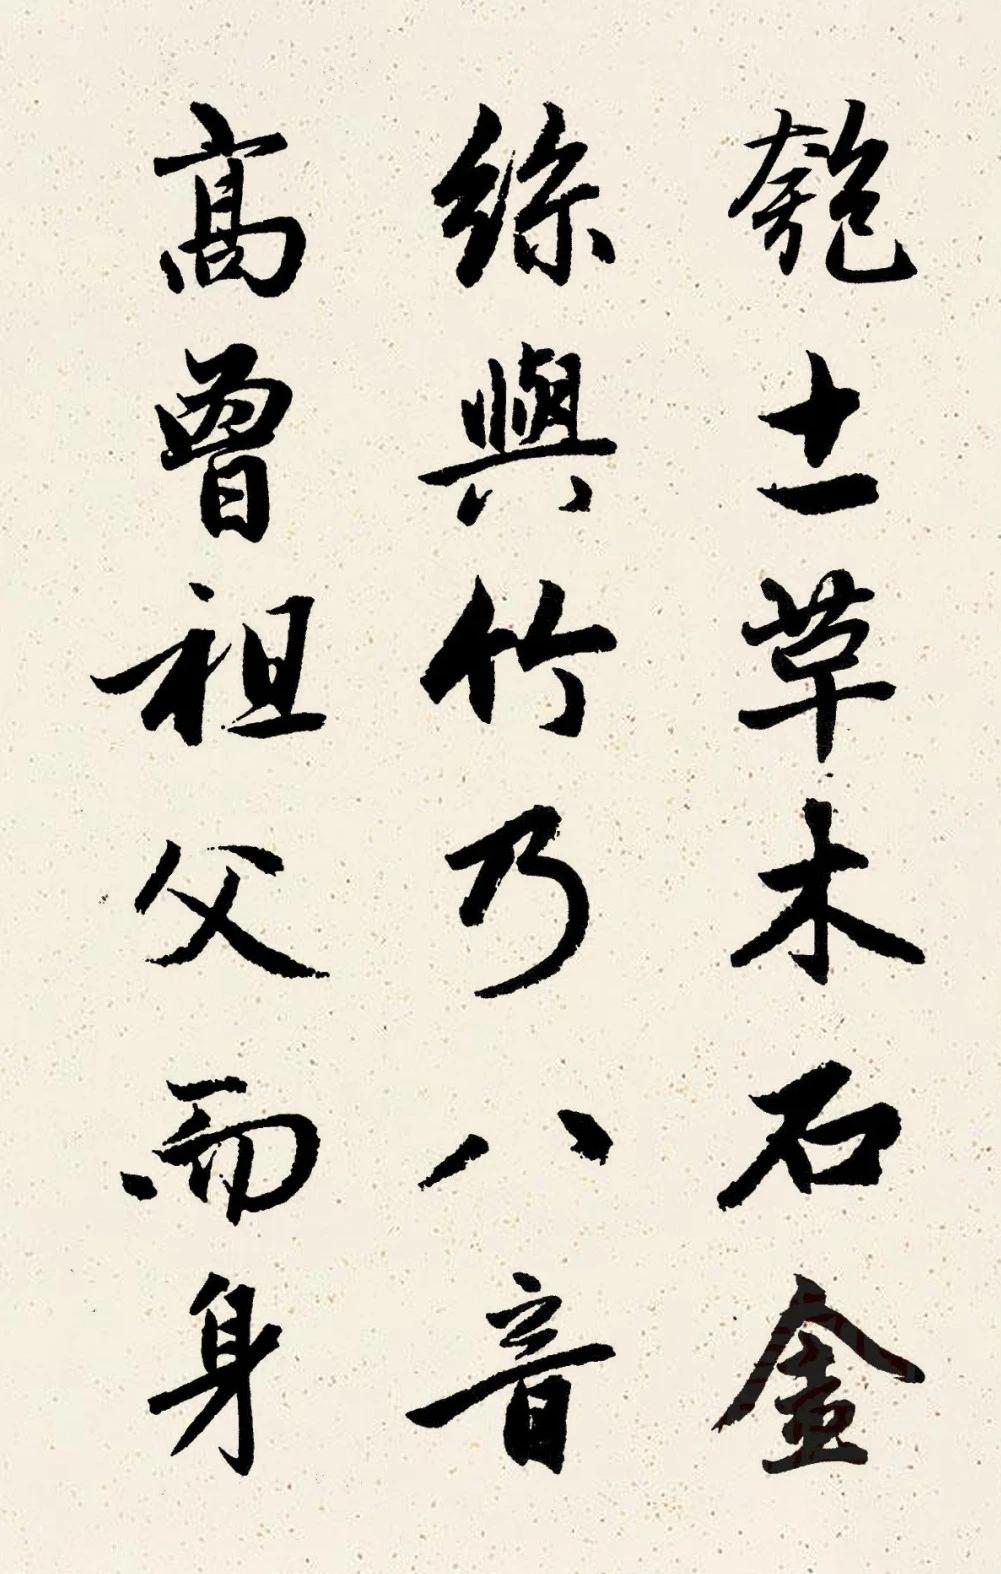 匏土草木石金
絲與竹乃八音
高曾祖父而身